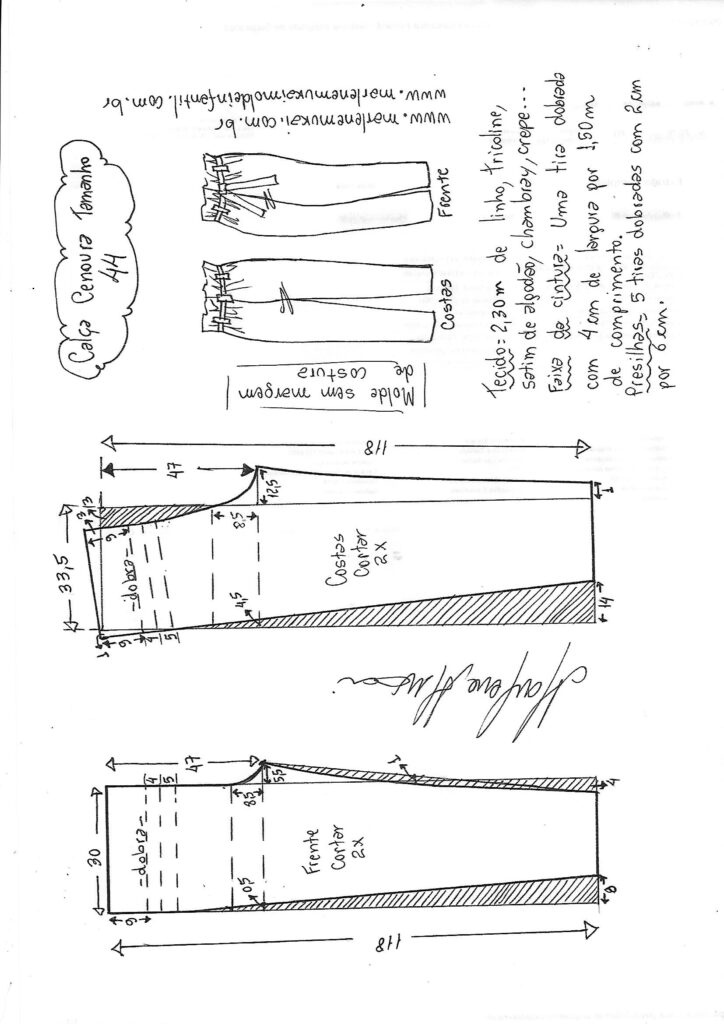 Calça Cenoura Tamanho
44
www.marlenemukai.com.br
www.marlenemukaimoldeinfantil.com.br
Frente
Costas
Molde sem margem
de costura
Tecido= 2,30m de linho, tricoline,
satim de algodão, chambray, crepe...
Faixa da cintura= Uma tira dobrada
com 4 cm de largura por 1,50m
de comprimento.
Presilhas= 5 tiras dobradas com 2 cm
por 6 cm.
118
47
33,5
3
3
9
-dobra-
12,5
8,5
1
Costas
Cortar
2x
4,5
14
1
9
4
5
Marlene Mukai
47
4
5
30
-dobra-
5,5
8,5
1
4
Frente
Cortar
2x
0,5
9
8
118